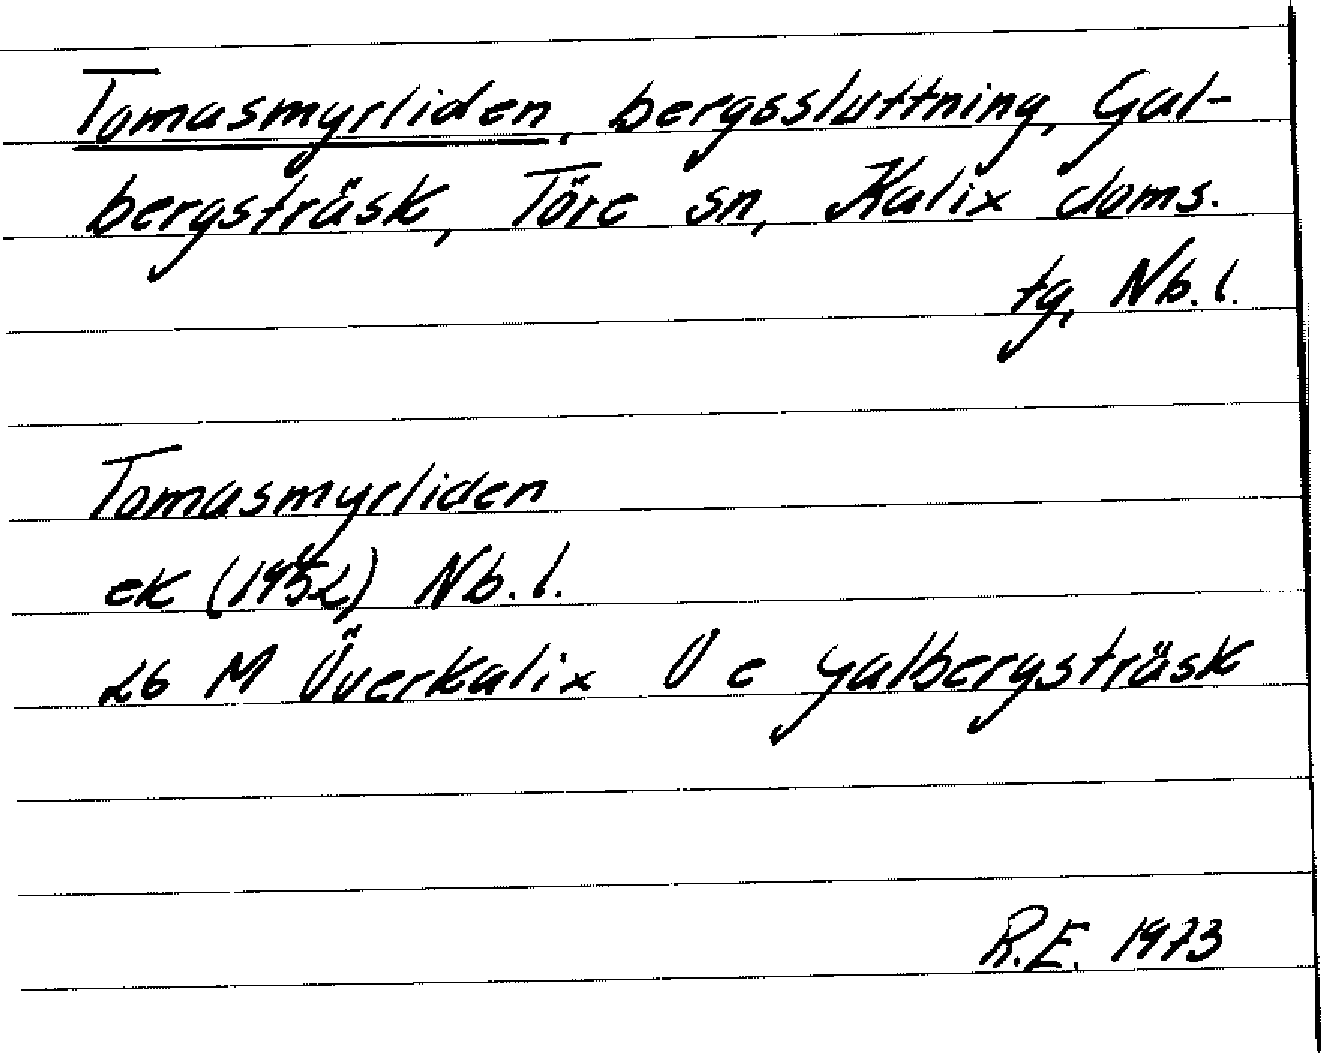 Tomasmyrliden, bergssluttning, Gal-
bergsträsk, Töre sn, Kalix doms.
tg, Nb.l.
Tomasmyrliden
ek (1952) Nb.l.
26 M Överkalix Ö e galbergsträsk
R.E. 1973